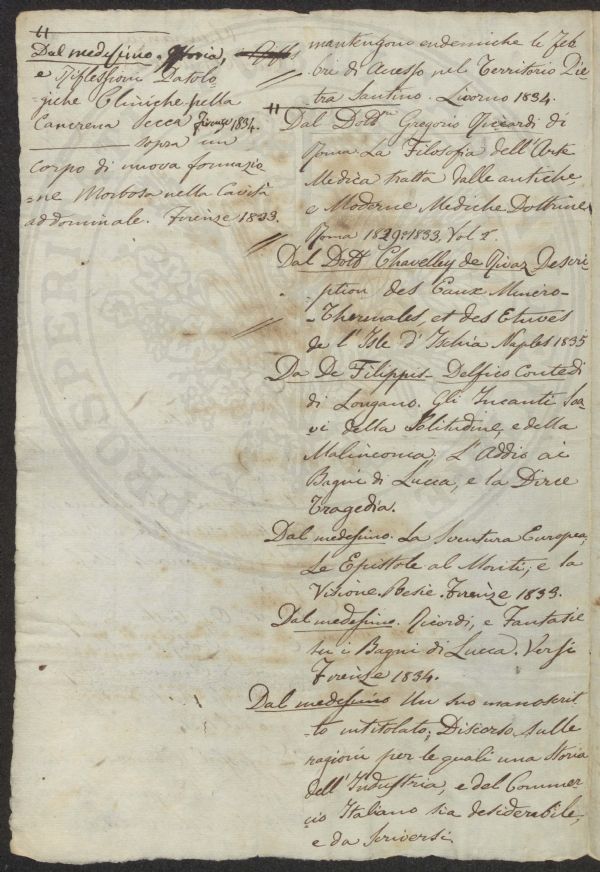 Dal medesimo. Storia,
e Riflessioni Patolo
giche Cliniche sulla
Cancrena secca Firenze 1834.
sopra un
corpo di nuova formazio
=ne Morbosa nella Cavità
addominale. Firenze 1833.
mantengono endemiche le Feb
bri di Accesso nel Territorio Pie
tra Santino. Livorno 1834.
Dal Dott. Gregorio Riccardi di
Roma La Filosofia dell'Arte
Medica tratta dalle antiche,
e Moderne Mediche Dottrine
Roma 1829=1833, Vol 2.
Dal Dott Chavelley de Rivaz Descri
ption des Eaux Minero-
-Thermales, et des Etuves
de l'Isle d'Ischia Naples 1835
Da De Filippis Delfico Conte di
di Longano. Gli Incanti Soa
vi della Solitudine, e della
Malinconia, L'Addio ai
Bagni di Lucca, e la Dirce
Tragedia.
Dal medesimo. La Sventura Europea,
Le Epistole al Monti; e la
Visione Poesie. Firenze 1833.
Dal medesimo. Ricordi, e Fantasie
su i Bagni di Lucca. Versi
Firenze 1834.
Dal medesimo Un suo manoscrit
to intitolato; Discorso sulle
ragioni per le quali una Storia
dell'Industria, e del Commer
cio Italiano sia desiderabile,
e da scriversi
PROSPERI